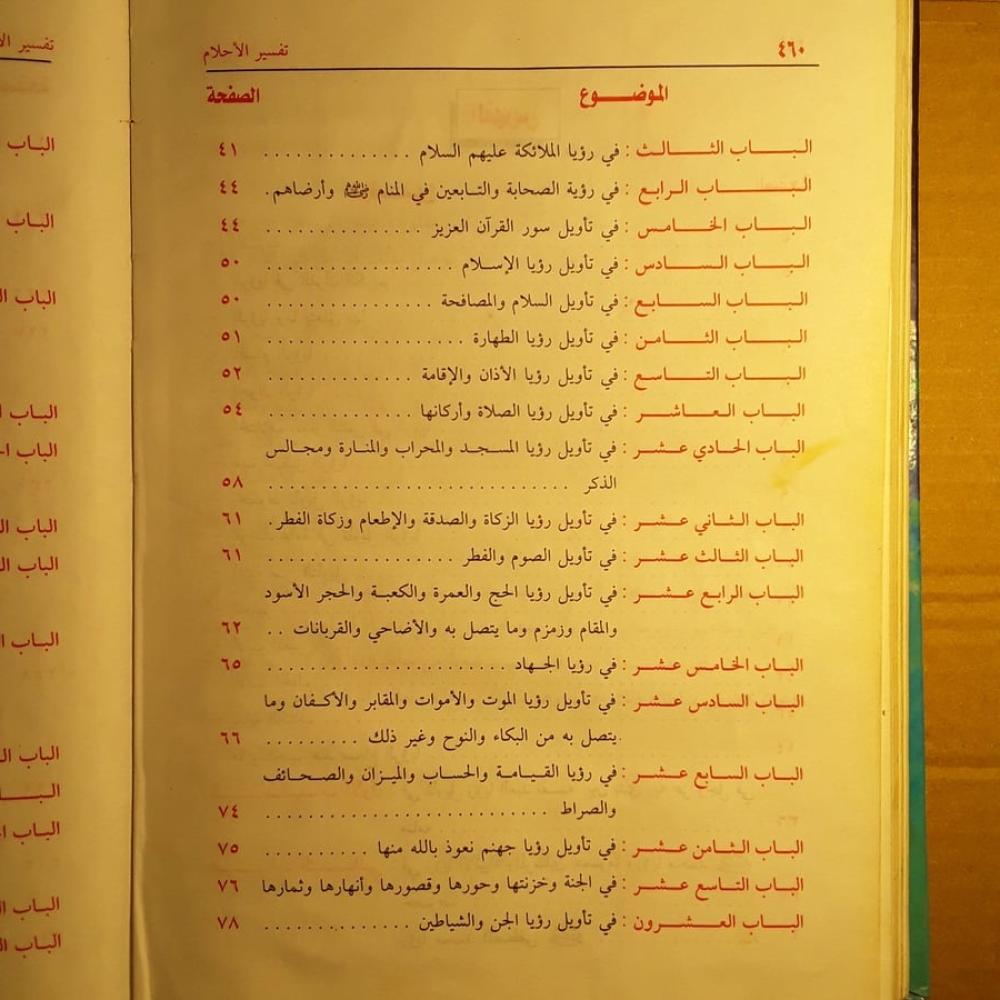 ٤٦٠ تفسير الأحلام
الموضـــوع الصفحة
البـــاب الثـــالـث : في رؤيا الملائكة عليهم السلام . . . . . . . . . . . . . ٤١
البـــاب الـرابـع : في رؤية الصحابة والتـابعين في المنام ﷺ وأرضاهم. ٤٤
البـــاب الخـامـس : في تأويل سور القرآن العزيز . . . . . . . . . . . . . . ٤٤
البـــاب الســـادس : في تأويل رؤيا الإسـلام . . . . . . . . . . . . . . . . . ٥٠
البـــاب السـابـع : في تأويل السلام والمصافحة . . . . . . . . . . . . . . ٥٠
البـــاب الثـــامـن : في تأويل رؤيا الطهارة . . . . . . . . . . . . . . . . . . ٥١
البـــاب التـــاسـع : في تأويل رؤيا الأذان والإقامة . . . . . . . . . . . . . ٥٢
البـــاب العـاشـــر : في تأويل رؤيا الصلاة وأركانها . . . . . . . . . . . . . ٥٤
البـاب الحـادي عـشـر : في تأويل رؤيا المسـجـد والمحراب والمنـارة ومجـالس
الذكر . . . . . . . . . . . . . . . . . . . . . . . . . . . . ٥٨
البـاب الثـاني عـشـر : في تأويل رؤيا الزكاة والصدقة والإطعام وزكاة الفطر. ٦١
البـاب الثالـث عـشـر : في تأويل الصوم والفطر . . . . . . . . . . . . . . . . . ٦١
البـاب الرابـع عـشـر : في تأويل رؤيا الحج والعمرة والكعبـة والحجر الأسود
والمقام وزمزم وما يتصل به والأضاحي والقربانات . . ٦٢
البـاب الخـامس عـشـر : في رؤيا الجـهاد . . . . . . . . . . . . . . . . . . . . . . ٦٥
البـاب السـادس عـشـر : في تأويل رؤيا الموت والأموات والمقابر والأكـفـان وما
يتصل به من البكاء والنوح وغير ذلك . . . . . . . . . ٦٦
البـاب السـابع عـشـر : في رؤيا القـيـامـة والحساب والميـزان والصـحـائف
والصراط . . . . . . . . . . . . . . . . . . . . . . . . . . ٧٤
البـاب الثـامن عـشـر : في تأويل رؤيا جهنم نعوذ بالله منها . . . . . . . . . . ٧٥
البـاب التـاسع عـشـر : في الجنة وخزنتها وحورها وقصورها وأنهارها وثمارها ٧٦
البـاب العـشـــرون : في تأويل رؤيا الجن والشياطين . . . . . . . . . . . . . ٧٨
تفسير
الباب
الباب
الباب
الباب
الباب
الباب
الباب
الباب
الباب
البـــا
الباب
الباب
الباب